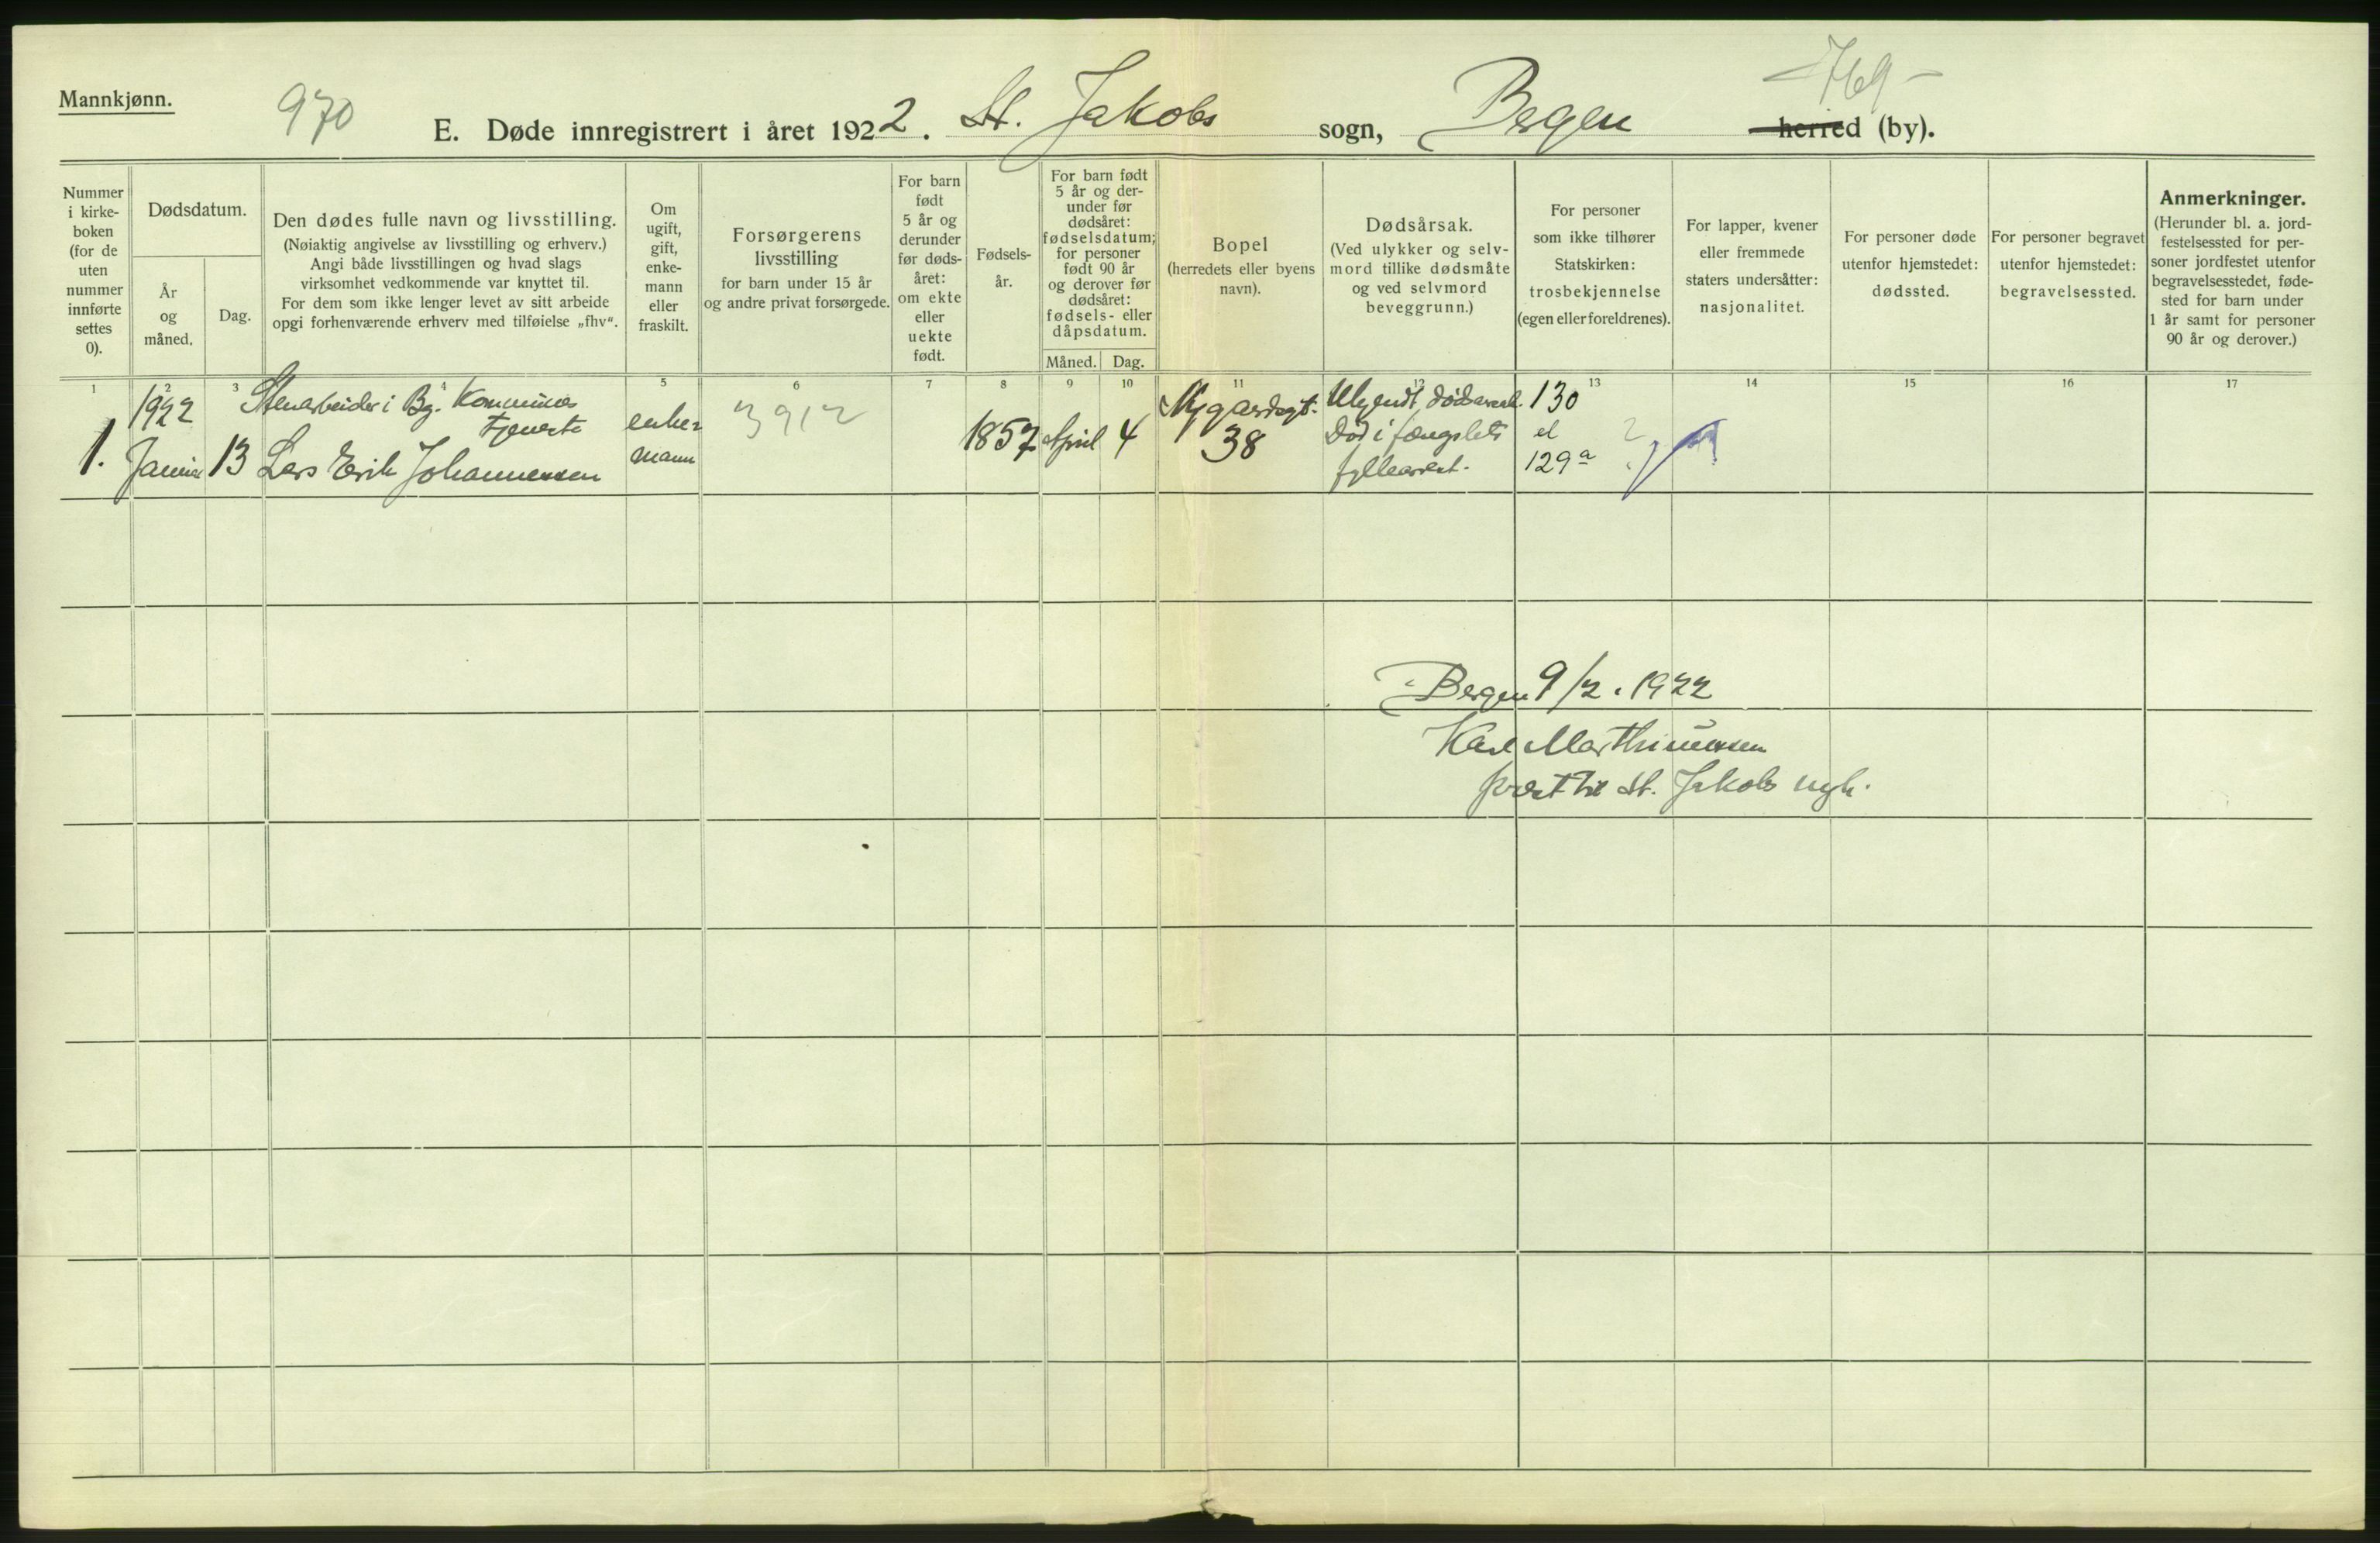 Mannkjønn.
970
E. Døde innregistrert i året 1922. St. Jakobs sogn, Bergen herred (by).
Nummer i kirke-boken (for de uten nummer innførte settes 0).
Dødsdatum.
År og måned.
Dag.
Den dødes fulle navn og livsstilling.
(Nøiaktig angivelse av livsstilling og erhverv.)
Angi både livsstillingen og hvad slags
virksomhet vedkommende var knyttet til.
For dem som ikke lenger levet av sitt arbeide
opgi forhenværende erhverv med tilføielse „fhv“.
Om ugift, gift, enke-mann eller fraskilt.
Forsørgerens livsstilling
for barn under 15 år
og andre privat forsørgede.
For barn født 5 år og derunder før døds-året: om ekte eller uekte født.
Fødsels-år.
For barn født 5 år og der-under før dødsåret: fødselsdatum; for personer født 90 år og derover før dødsåret: fødsels- eller dåpsdatum.
Måned. Dag.
Bopel
(herredets eller byens navn).
Dødsårsak.
(Ved ulykker og selv-mord tillike dødsmåte og ved selvmord beveggrunn.)
For personer som ikke tilhører Statskirken: trosbekjennelse (egen eller foreldrenes).
For lapper, kvener eller fremmede staters undersåtter: nasjonalitet.
For personer døde utenfor hjemstedet: dødssted.
For personer begravet utenfor hjemstedet: begravelsessted.
Anmerkninger.
(Herunder bl. a. jord-festelsessted for per-soner jordfestet utenfor begravelsesstedet, føde-sted for barn under 1 år samt for personer 90 år og derover.)
1 2 3 4 5 6 7 8 9 10 11 12 13 14 15 16 17
1. 1922 Januar 13
Stenarbeider i Bg. Kommunes
tjeneste
Lars Erik Johannessen
enke-
mann
3912
1857 April 4
Nygaardsgt.
38
Ukjendt dødsaarsak.
Død i fængslets
fyllearrest.
130
el
129a
?
Bergen 9/2. 1922
Karl Marthinussen
prest til St. Jakobs mgh.